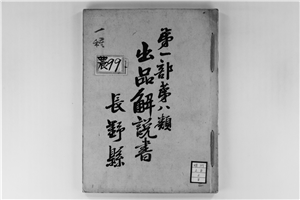 第一部第八類
出品解説書
長野縣
一号
農99